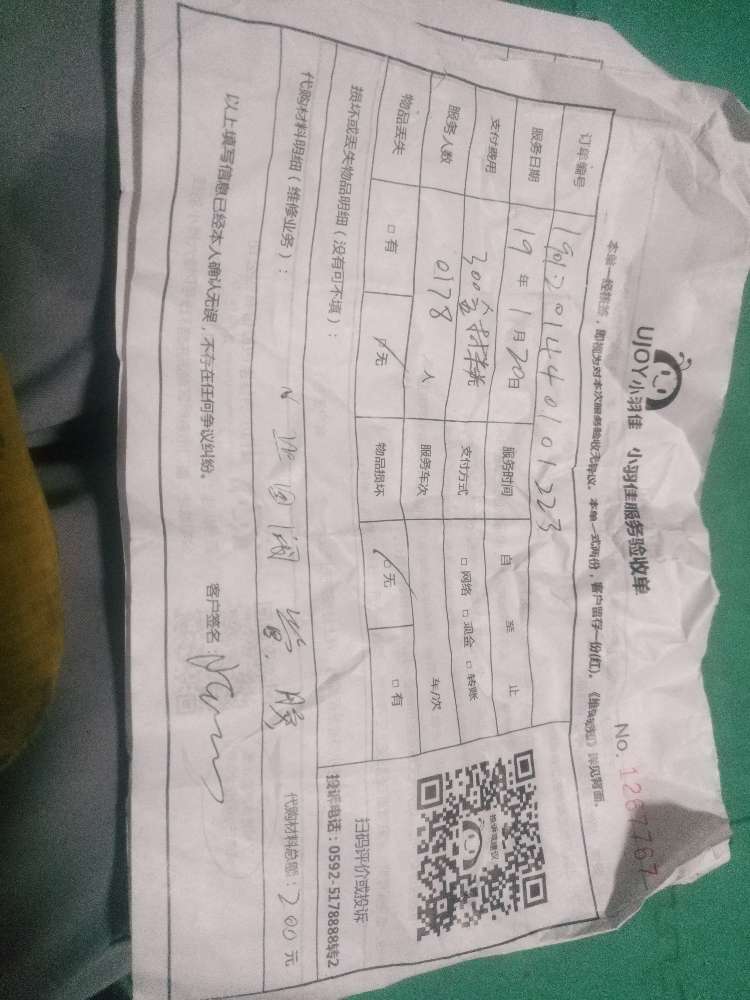 UJOY小羽佳 小羽佳服务验收单
No. 1267767
本单一经签署，即视为对本次服务验收无异议。本单一式两份，客户留存一份(红)。《维保须知》详见背面。
订单编号
服务日期 19 年 1 月 20 日 服务时间 自 至 止
支付费用 300含材料 支付方式 □ 网络 □ 现金 □ 转账
服务人数 0178 人 服务车次 车/次
物品丢失 □ 有 □ 无 物品损坏 □ 无 □ 有
损坏或丢失物品明细（没有可不填）：
扫码评价或投诉
投诉电话：0592-5178888转2
代购材料明细（维修业务）：
代购材料总额：200 元
以上填写信息已经本人确认无误，不存在任何争议纠纷。
客户签名：